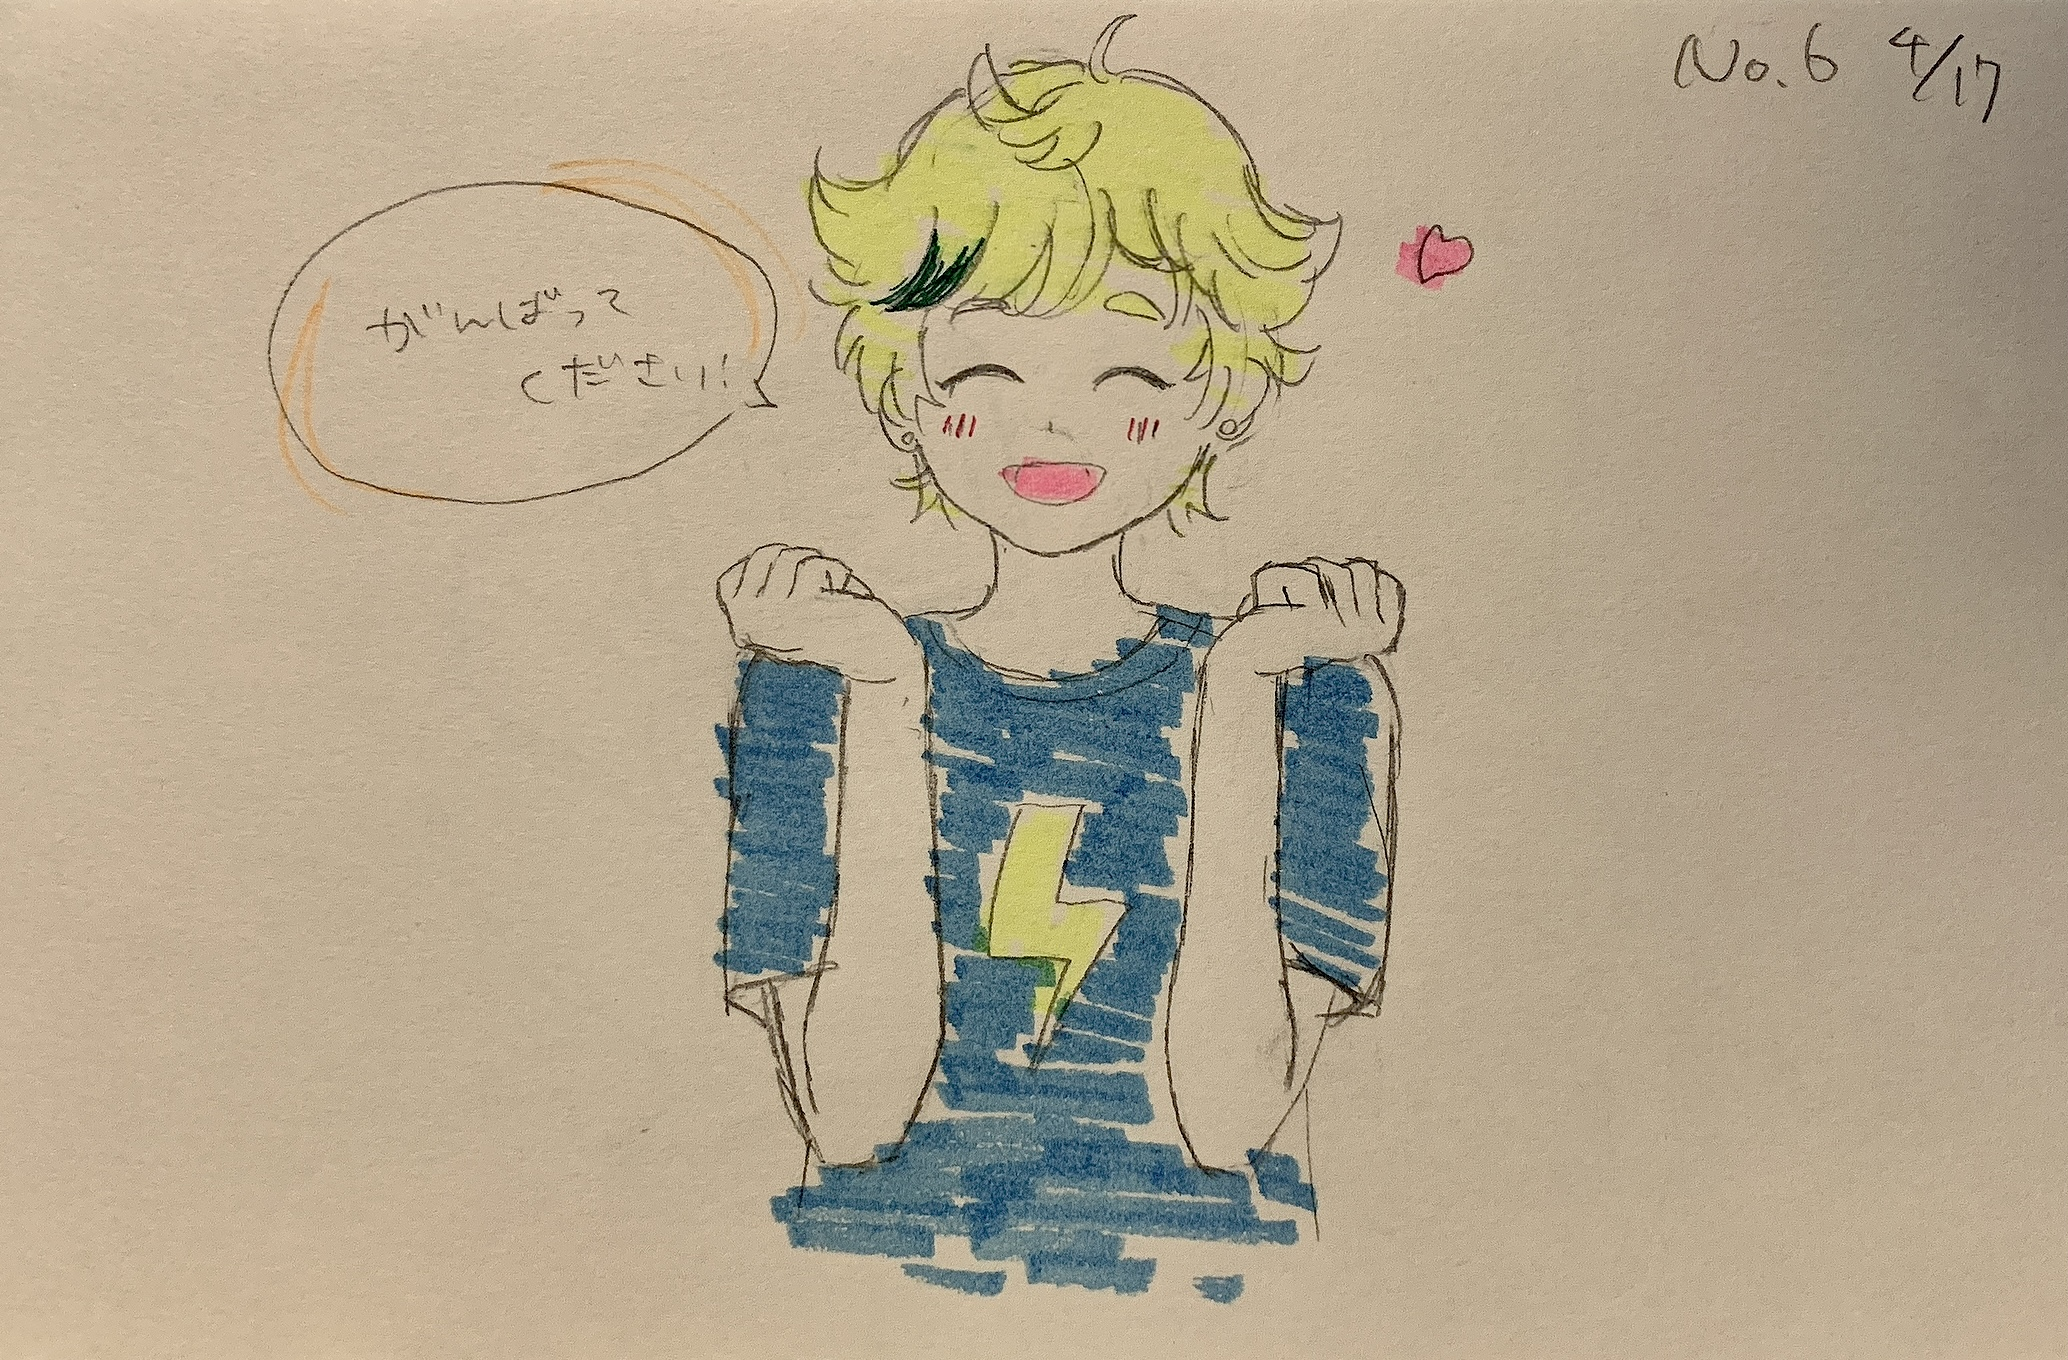 No.6 4/17
がんばって
ください!